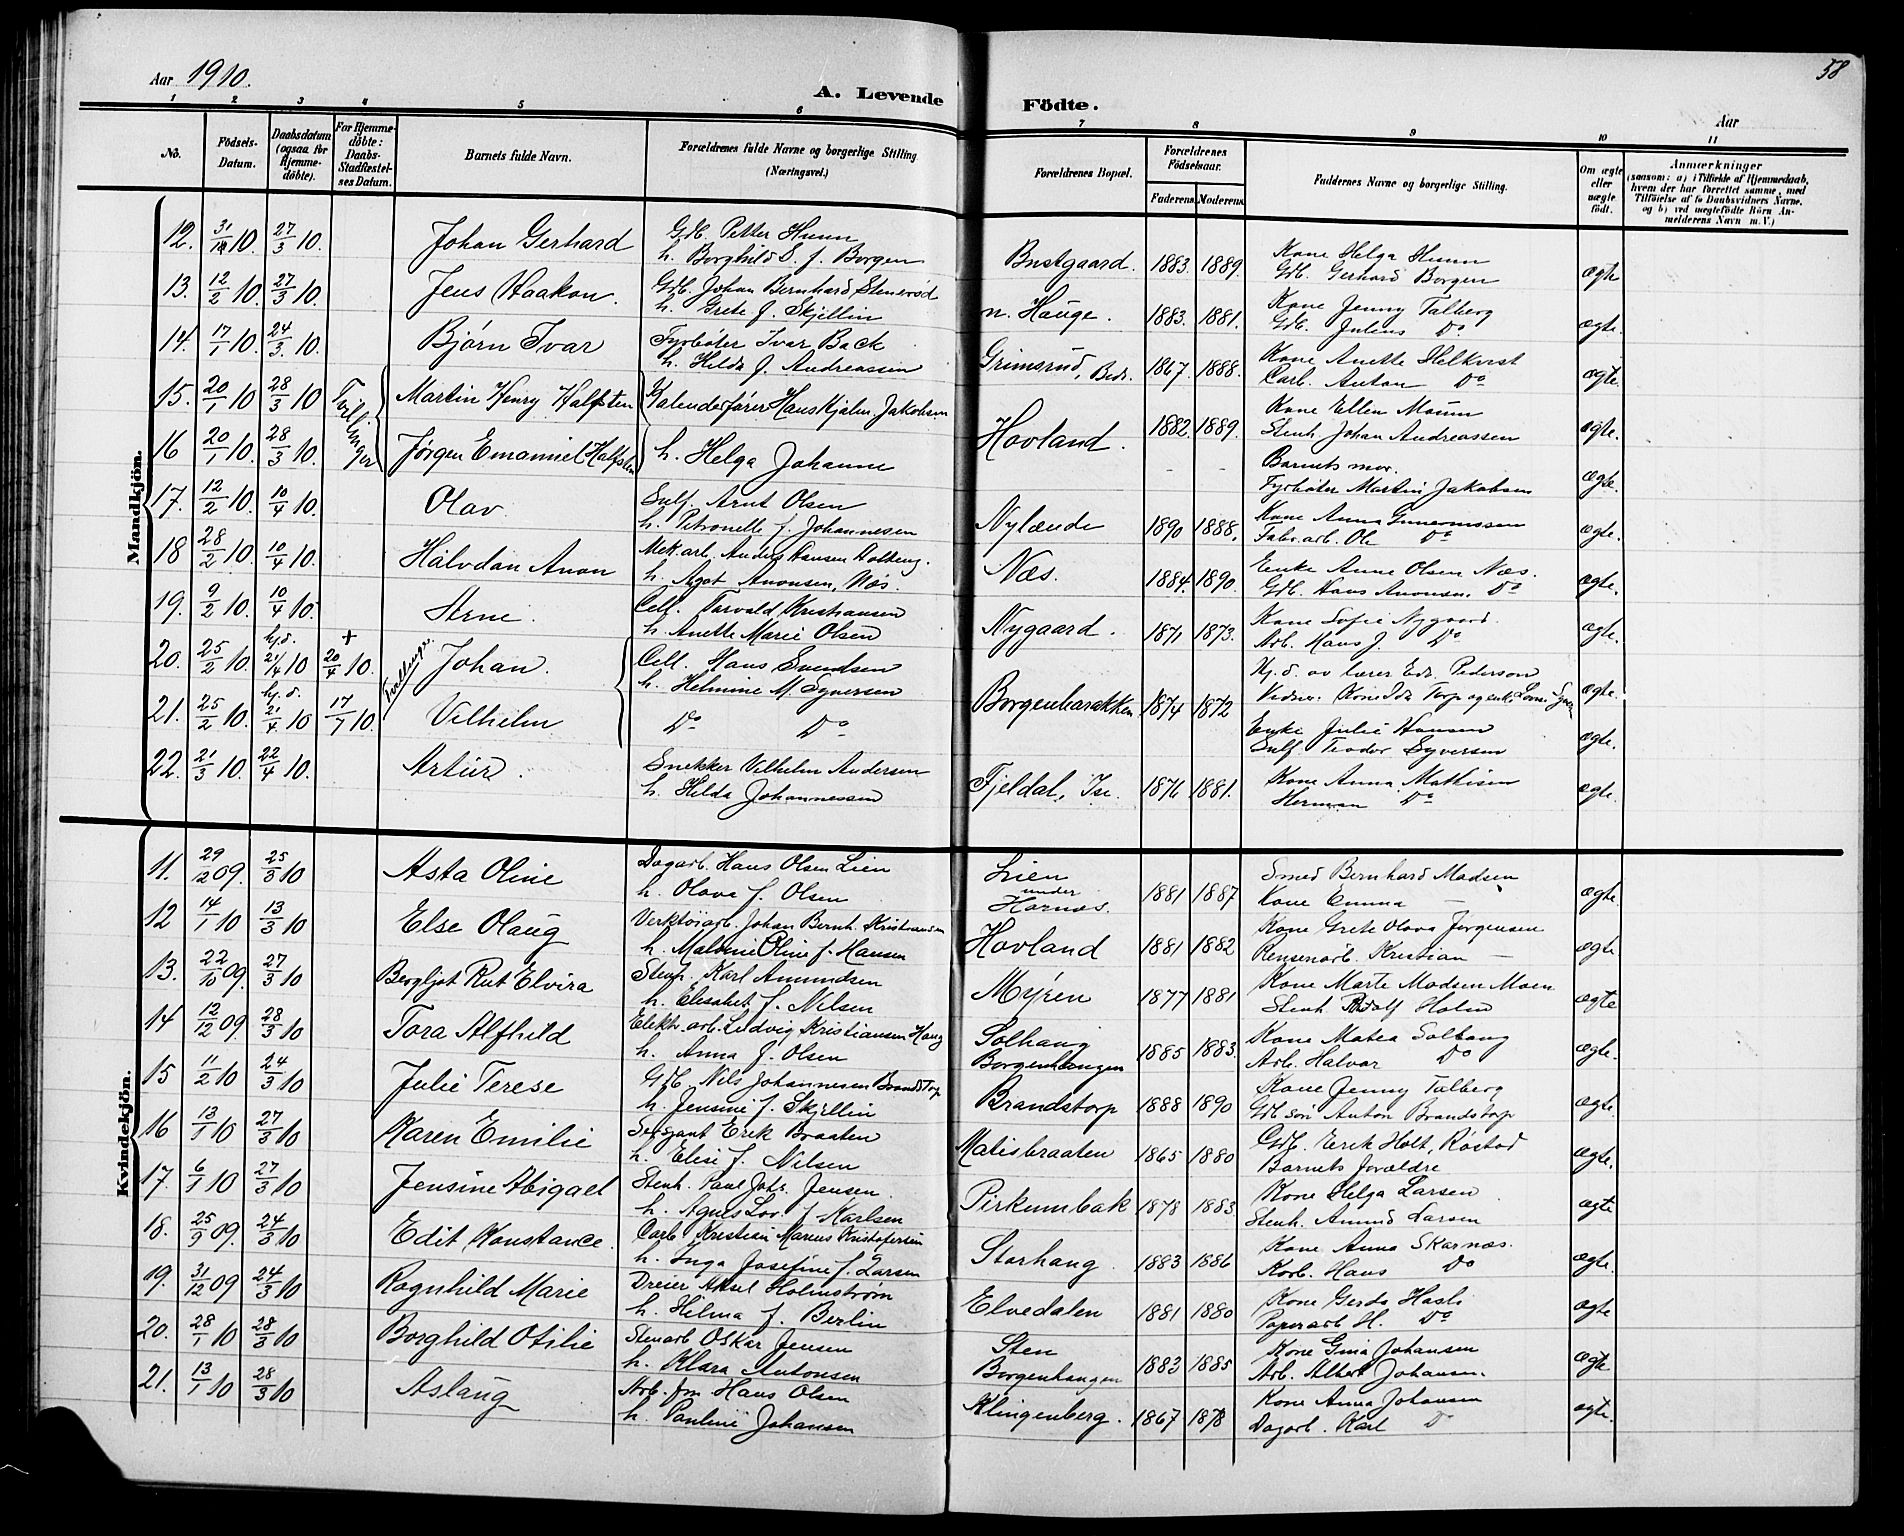 Aar 1910.
A. Levende Födte.
58
Aar
1 2 3 4 5 6 7 8 9 10 11
No.
Födsels-Datum.
Daabsdatum (ogsaa for Hjemme-döbte).
For Hjemme-döbte: Daabs-Stadfæstel-ses Datum.
Barnets fulde Navn.
Forældrenes fulde Navne og borgerlige Stilling (Næringsvei.)
Forældrenes Bopæl.
Forældrenes Födselsaar.
Faderens. Moderens.
Faddernes Navne og borgerlige Stilling.
Om ægte eller uægte födt.
Anmærkninger
(saasom: a) i Tilfælde af Hjemmedaab, hvem der har forrettet samme, med Tilföielse af to Daabsvidners Navne, og b) ved uægtefödte Börn An-melderens Navn m. V.)
Mandkjön.
12. 31/12 10. 27/3 10. Johan Gerhard Gdb. Petter Hunn Bustgaard. 1883. 1889. Kone Helga Hunn ægte
h. Borghild D. f. Borgen Gdb. Gerhard Borgen
13. 12/2 10. 27/3 10. Jens Haakon. Gdb. Johan Bernhard Stenerød n. Hauge. 1883. 1881. Kone Jenny Talberg ægte.
h. Grete f. Skjellin Gdb. Julius Do
14. 17/1 10. 24/3 10. Bjørn Ivar Fyrbøter Ivar Back Grimsrud, Bedr. 1867. 1888. Kone Anette Helkvist ægte.
h. Hilda f. Andreassen Carb. Anton Do
15. 20/1 10 28/3 10 Tvillinger Martin Henry Halfsten Kalenderfører Hans Hjalm. Jakobsen Hovland. 1882. 1889. Kone Ellen Moum ægte.
Stenh. Johan Andreassen
16 20/1 10. 28/3 10. Jørgen Emanuel Halfsten h. Helga Johanne - - Barnets mor. ægte.
Fyrbøter Martin Jakobsen
17. 12/2 10. 10/4 10. Olav Sulf. Arnt Olsen Nylænde 1890 1888. Kone Anna Gunermssen ægte.
h. Petronelle f. Johannesen Fabr.arb. Ole Do
18 28/2 10. 10/4 10. Halvdan Anon Mek.arb. Anders Hansen Holberg. Næs. 1884. 1890. Enke Anne Olsen Næs. ægte.
h. Agot Anonsen, Næs. Gdb. Hans Anonsen. Do
19. 9/2 10. 10/4 10. Arne. Cell. Torvald Kristiansen Nygaard. 1871 1873. Kone Sofie Nygaard. ægte.
h. Anette Marie Olsen Arb. Hans J. Do
20. 25/2 10. hj.d. 21/4 10 + 20/4 10. Tvillinger Johan. Cell. Hans Svendsen Borgenbarakken 1874 1872 Hj.d. av lærer Edv. Pederson ægte.
h. Helmine M. Syversen Vidner. Kone Ida Torp og enke
21. 25/2 10. hj.d. 21/4 10 17/7 10. Vilhelm Do Do Enke Julie Hansen ægte.
Sulf. Teodor Syversen
22. 21/3 10. 22/4 10. Artur. Snekker Vilhelm Andersen Fjeldal, Ise. 1876 1881. Kone Anna Mathisen ægte.
h. Hilda Johannessen Herman Do
Kvindekjön.
11. 29/12 09. 25/3 10 Asta Oline Dagarb. Hans Olsen Lien Lien under Hornæs. 1881 1887 Smed Bernhard Madsen ægte.
h. Olava f. Olsen Kone Emma —
12 14/1 10 13/3 10 Else Olaug Verktøiarb. Johan Bernh. Kristiansen Hovland 1881 1882 Kone Grete Olava Jørgensen ægte
h. Malvine Oline f. Hansen Rensenarb. Kristian —
13. 22/10 09. 27/3 10 Bergljot Rut Elvira Stenh. Karl Amundsen Myren 1877 1881 Kone Marte Madsen Moen ægte
h. Elisabet f. Nilsen Stenh. Rolf Holm
14 12/12 09. 28/3 10 Tora Alfhild Elektr.arb. Ludvig Kristiansen Haug Solhaug Borgenhaugen 1885 1883. Kone Matea Solhaug ægte.
h. Anna f. Olsen Arb. Halvar Do
15 11/2 10 24/3 10 Julie Terese Gdb. Nils Johannesen Brandstorp Brandstorp 1888 1890 Kone Jenny Talberg ægte.
h. Jensine f. Skjellin Gdb.søn Anton Brandstorp
16 13/1 10 27/3 10 Karen Emilie Sersjant Erik Braaten Matisbraaten 1865 1880 Gdb. Erik Holt, Røstad ægte.
h. Elise f. Nilsen Barnets forældre
17. 6/1 10 27/3 10 Jensine Abigael Stenh. Paul Johs. Jensen. Pirkumbak 1878 1883 Kone Helga Larsen ægte
h. Agnes Lov. f Karlsen Stenh. Amund Larsen
18. 25/9 09. 24/3 10 Edit Konstance. Carb Kristian Marius Kristofersen Storhaug. 1883 1886 Kone Anna Skarnæs. ægte.
h. Inga Josefine f. Larsen Korb. Hans Do
19. 31/12 09 24/3 10 Ragnhild Marie Dreier Aksel Holmstrøm Elvedalen 1881 1880 Kone Gerda Hasli ægte
h. Hilma f. Berlin Papirarb H. Do
20. 28/1 10 28/3 10 Borghild Otilie Stenarb Oskar Jensen Sten Borgenhaugen 1883 1885 Kone Gina Johansen ægte
h. Klara Antonsen Arb. Albert Johansen.
21. 13/1 10 28/3 10 Aslaug Arb.fm Hans Olsen Klingenberg. 1867 1878 Kone Anna Johansen ægte.
h. Pauline Johansen Dagarb. Karl Do